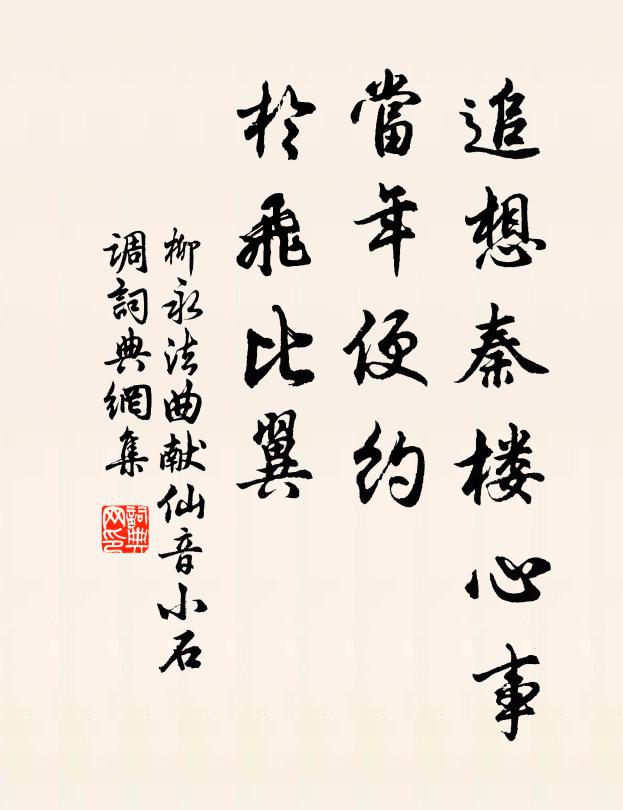 追想秦楼心事
當年便約
於飛比翼
柳永法曲献仙音小石
调詞典網集
詞典网印